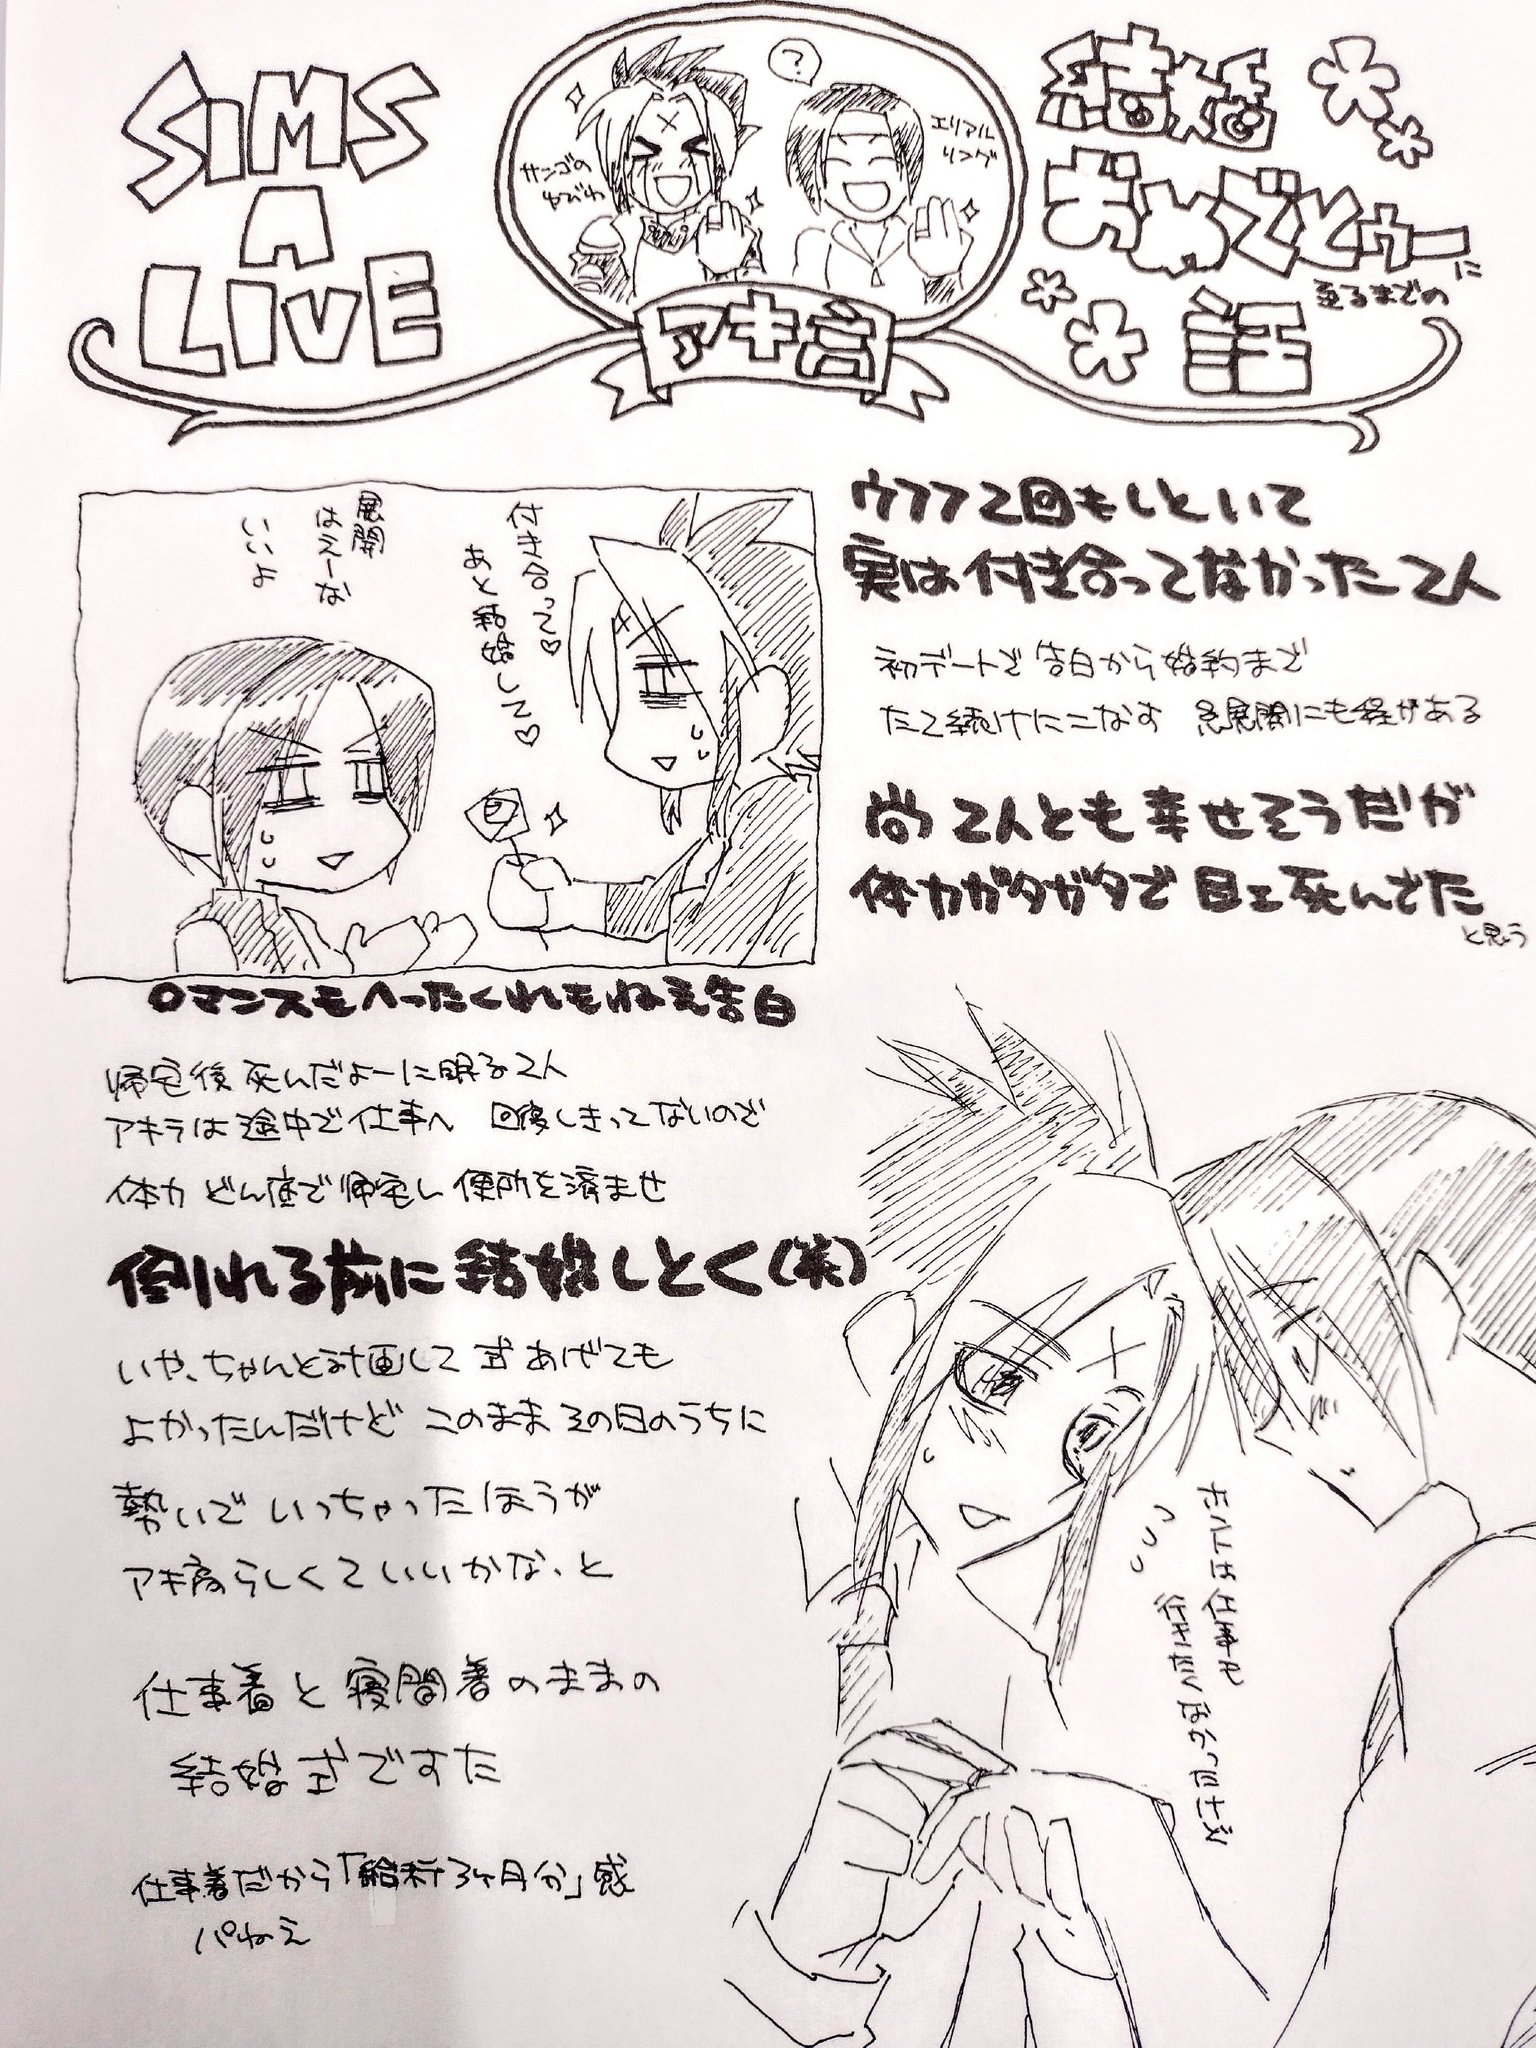 SIMS
A
LIVE
サンゴの
ゆびわ
?
エリアル
リング
アキ宮
結婚
おめでとゥーに
至るまでの
話
ウフフ2回もしといて
実は付き合ってなかった2人
初デートで告白から婚約まで
たて続けにこなす 急展開にも程がある
尚2人とも幸せそうだが
体力ガタガタで目ェ死んでた
と思う
付き合って♡
あと結婚して♡
展開
はえーな
いいよ
ロマンスもへったくれもねえ告白
帰宅後死んだよーに眠る2人
アキラは途中で仕事へ 回復しきってないので
体力どん底で帰宅し便所を済ませ
倒れる前に結婚しとく(笑)
いや、ちゃんと計画して式あげても
よかったんだけど このままその日のうちに
勢いでいっちゃったほうが
アキ宮らしくていいかな、と
仕事着と寝間着のままの
結婚式ですた
仕事着だから「給料3ヶ月分」感
パねえ